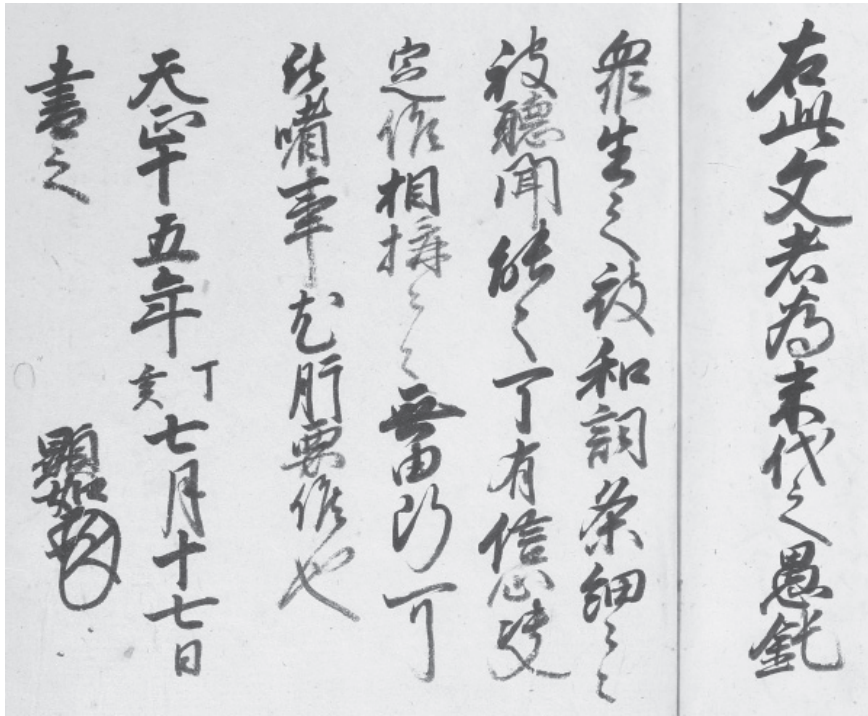 右此文者為末代之愚鈍
衆生之被和詞条細々
被聴聞能々可有信心決
定候相構々々無由断可
被嗜事尤肝要候也
天正十五年丁亥七月十七日
書之 顕如